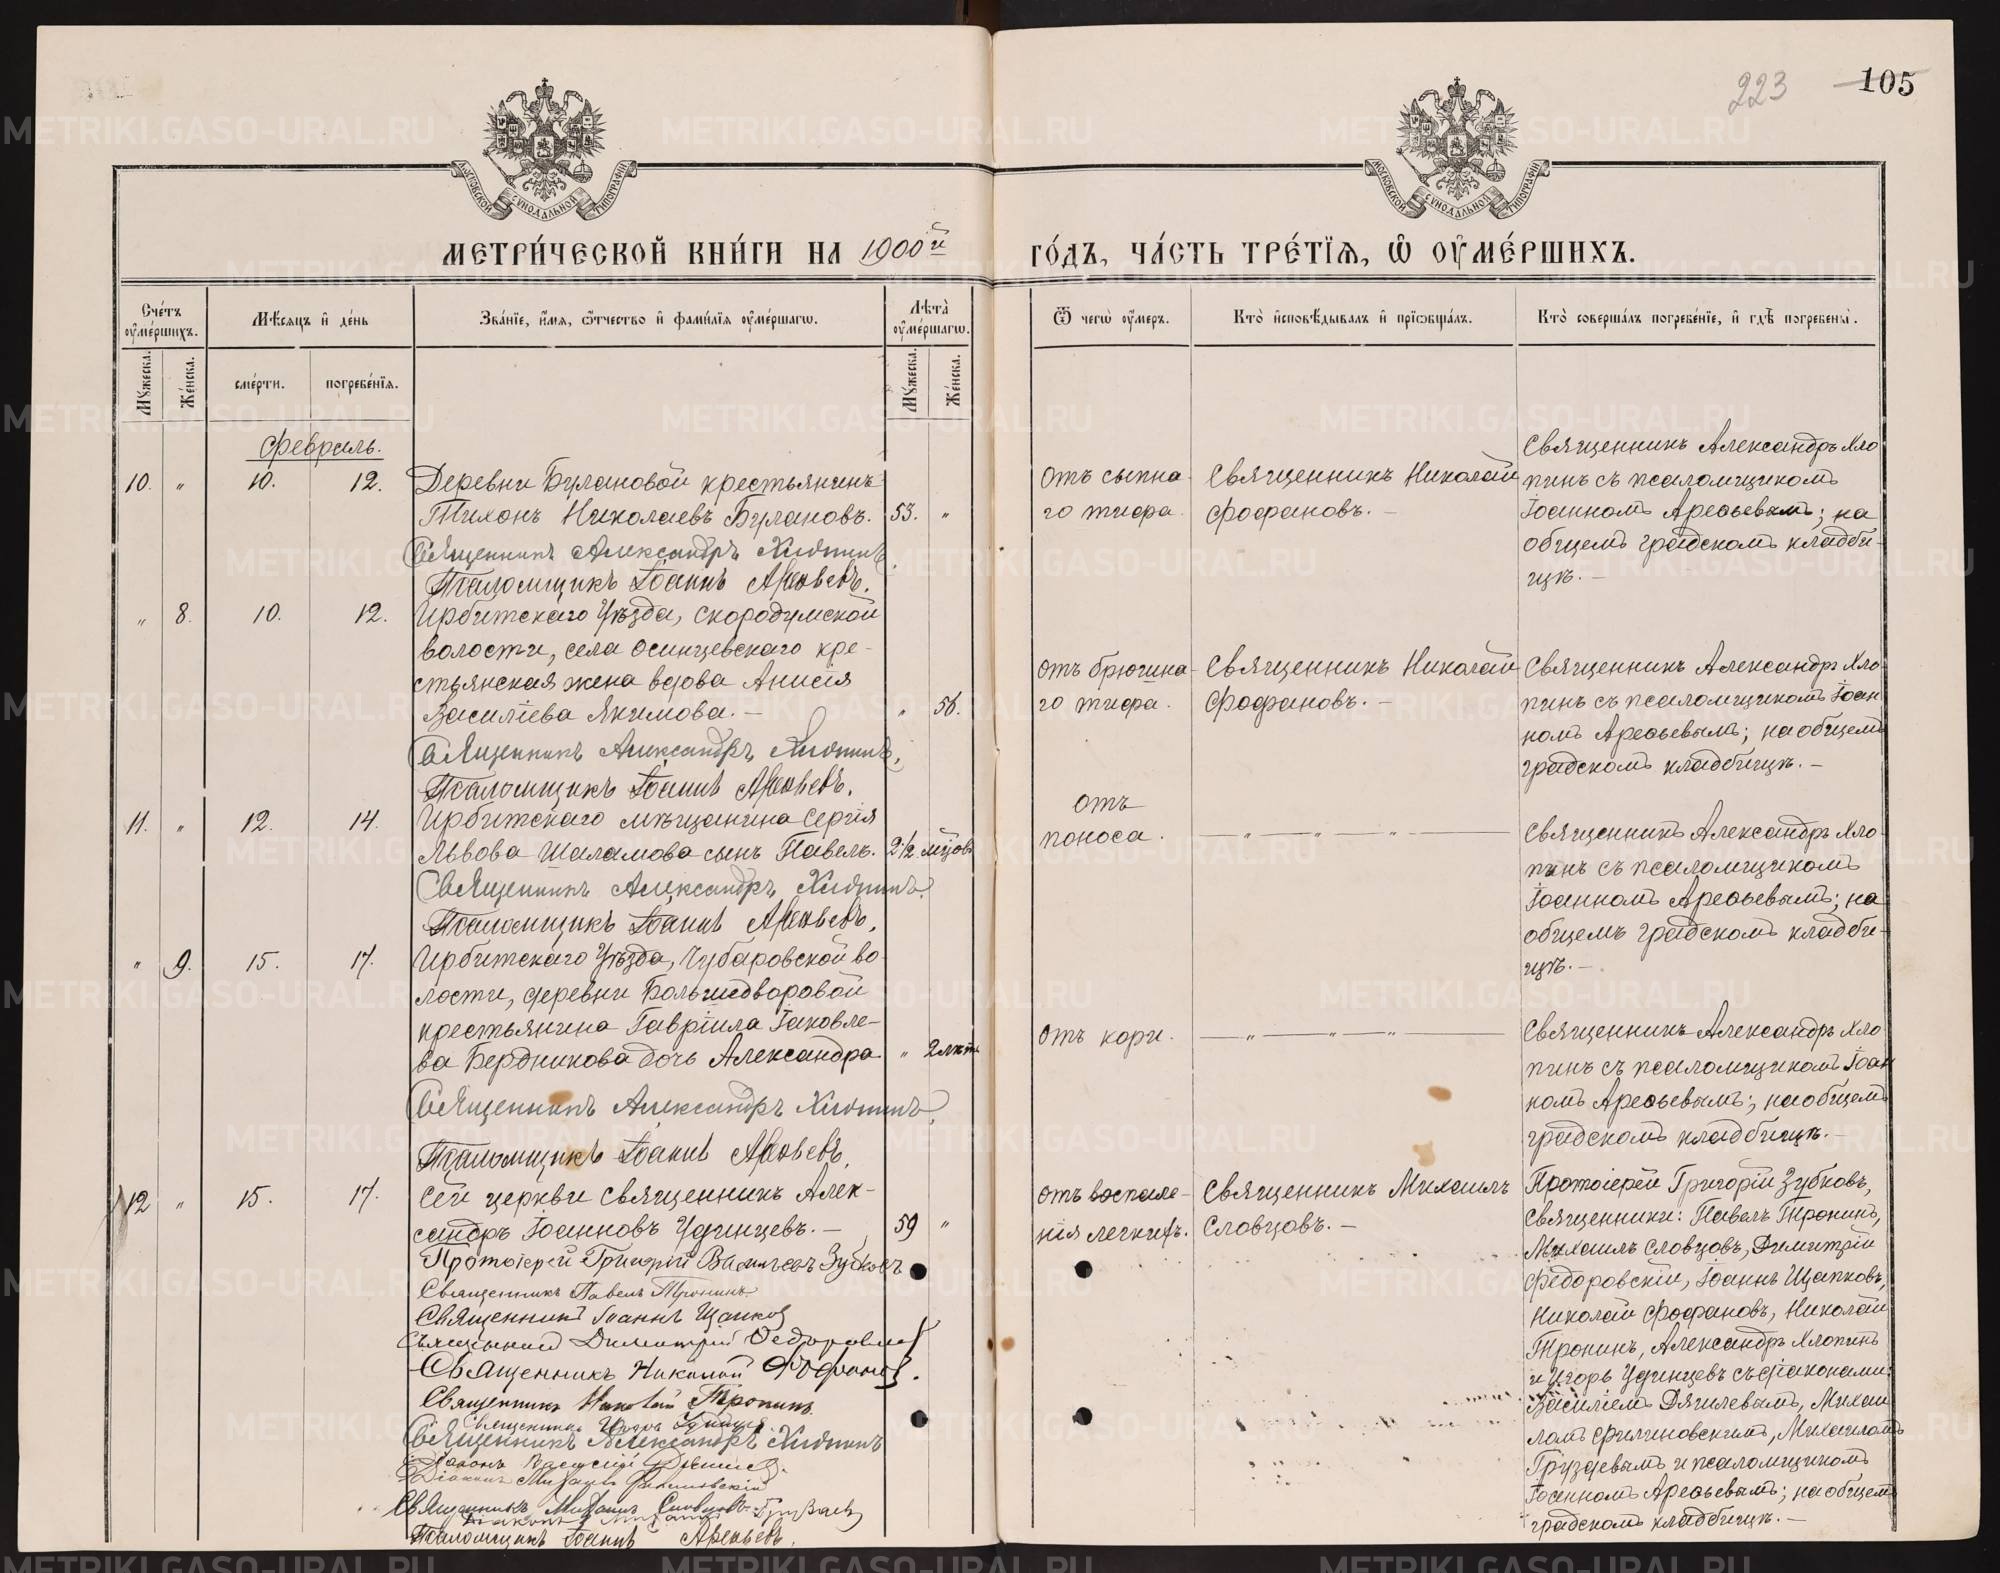 223 105
МОСКОВСКОЙ СѴНОДАЛЬНОЙ ТИПОГРАФІИ
МОСКОВСКОЙ СѴНОДАЛЬНОЙ ТИПОГРАФІИ
МЕТРИ́ЧЕСКОЙ КНИ́ГИ НА 1900й ГО́ДЪ, ЧА́СТЬ ТРЕ́ТЇѦ, Ѡ҆ ОУ҆МЕ́РШИХЪ.
Сче́тъ оу҆ме́ршихъ.
Мꙋ́жеска.
Же́нска.
Мѣ́сѧцъ и҆ де́нь
сме́рти.
погребе́нїѧ.
Зва́нїе, и҆́мѧ, ѻ҆́тчество и҆ фамѝлїѧ оу҆ме́ршагѡ.
Лѣ́та оу҆ме́ршагѡ.
Мꙋ́жеска.
Же́нска.
Ѿ чегѡ̀ оу҆́меръ.
Кто̀ и҆сповѣ́дывалъ и҆ прїѡбща́лъ.
Кто̀ соверша́лъ погребе́нїе, и҆ гдѣ̀ погребены̀.
Февраль.
10. " 10. 12.
Деревни Булановой крестьянинъ
Тихонъ Николаевъ Булановъ. 53. "
Священникъ Александръ Хлопинъ.
Псаломщикъ Іоаннъ Арефьевъ.
отъ сыпна
го тифа.
Священникъ Николай
Фофановъ. —
Священникъ Александръ Хло
пинъ съ псаломщикомъ
Іоанномъ Арефьевымъ; на
общемъ градскомъ кладби-
щѣ. —
" 8. 10. 12.
Ирбитскаго Уѣзда, Скородумской
волости, села Осинцевскаго кре-
стьянская жена вдова Анисія
Василіева Якимова. — " 56.
Священникъ Александръ Хлопинъ.
Псаломщикъ Іоаннъ Арефьевъ.
отъ брюшна
го тифа.
Священникъ Николай
Фофановъ. —
Священникъ Александръ Хло
пинъ съ псаломщикомъ Іоан
номъ Арефьевымъ; на общемъ
градскомъ кладбищѣ. —
11. " 12. 14.
Ирбитскаго мѣщанина Сергія
Львова Шаламова сынъ Павелъ. 2 1/2 мѣцовъ
Священникъ Александръ Хлопинъ.
Псаломщикъ Іоаннъ Арефьевъ.
отъ
поноса.
— " — " — " —
Священникъ Александръ Хло
пинъ съ псаломщикомъ
Іоанномъ Арефьевымъ; на
общемъ градскомъ кладби-
щѣ. —
" 9. 15. 17.
Ирбитскаго Уѣзда, Чубаровской во
лости, деревни Большедворовой
крестьянина Гавріила Іаковле-
ва Бердникова дочь Александра " 2 лѣтъ
Священникъ Александръ Хлопинъ
Псаломщикъ Іоаннъ Арефьевъ.
отъ кори.
— " — " — " —
Священникъ Александръ Хло
пинъ съ псаломщикомъ Іоан
номъ Арефьевымъ; на общемъ
градскомъ кладбищѣ. —
12 " 15. 17.
Сей церкви священникъ Алек-
сандръ Іоанновъ Удинцевъ. — 59 "
Протоіерей Григорій Васильевъ Зубковъ
Священникъ Павелъ Тронинъ
Священникъ Іоаннъ Щапковъ
Священникъ Димитрій Федоровскій
Священникъ Николай Фофановъ.
Священникъ Николай Тронинъ.
Священникъ Игорь Удинцев.
Священникъ Александръ Хлопинъ
Діаконъ Василій Дягилевъ.
Діаконъ Михаилъ Филиновскій
Священникъ Михаилъ Словцовъ
Діаконъ Михаилъ Груздевъ
Псаломщикъ Іоаннъ Арефьевъ.
отъ воспале-
нія легкихъ.
Священникъ Михаилъ
Словцовъ. —
Протоіерей Григорій Зубковъ,
Священники: Павелъ Тронинъ,
Михаилъ Словцовъ, Димитрій
Федоровскій, Іоаннъ Щапковъ,
Николай Фофановъ, Николай
Тронинъ, Александръ Хлопинъ
и Игорь Удинцевъ съ діаконами:
Василіемъ Дягилевымъ, Михаи
ломъ Филиновскимъ, Михаиломъ
Груздевымъ и псаломщикомъ
Іоанномъ Арефьевымъ; на общемъ
градскомъ кладбищѣ. —
METRIKI.GASO-URAL.RU